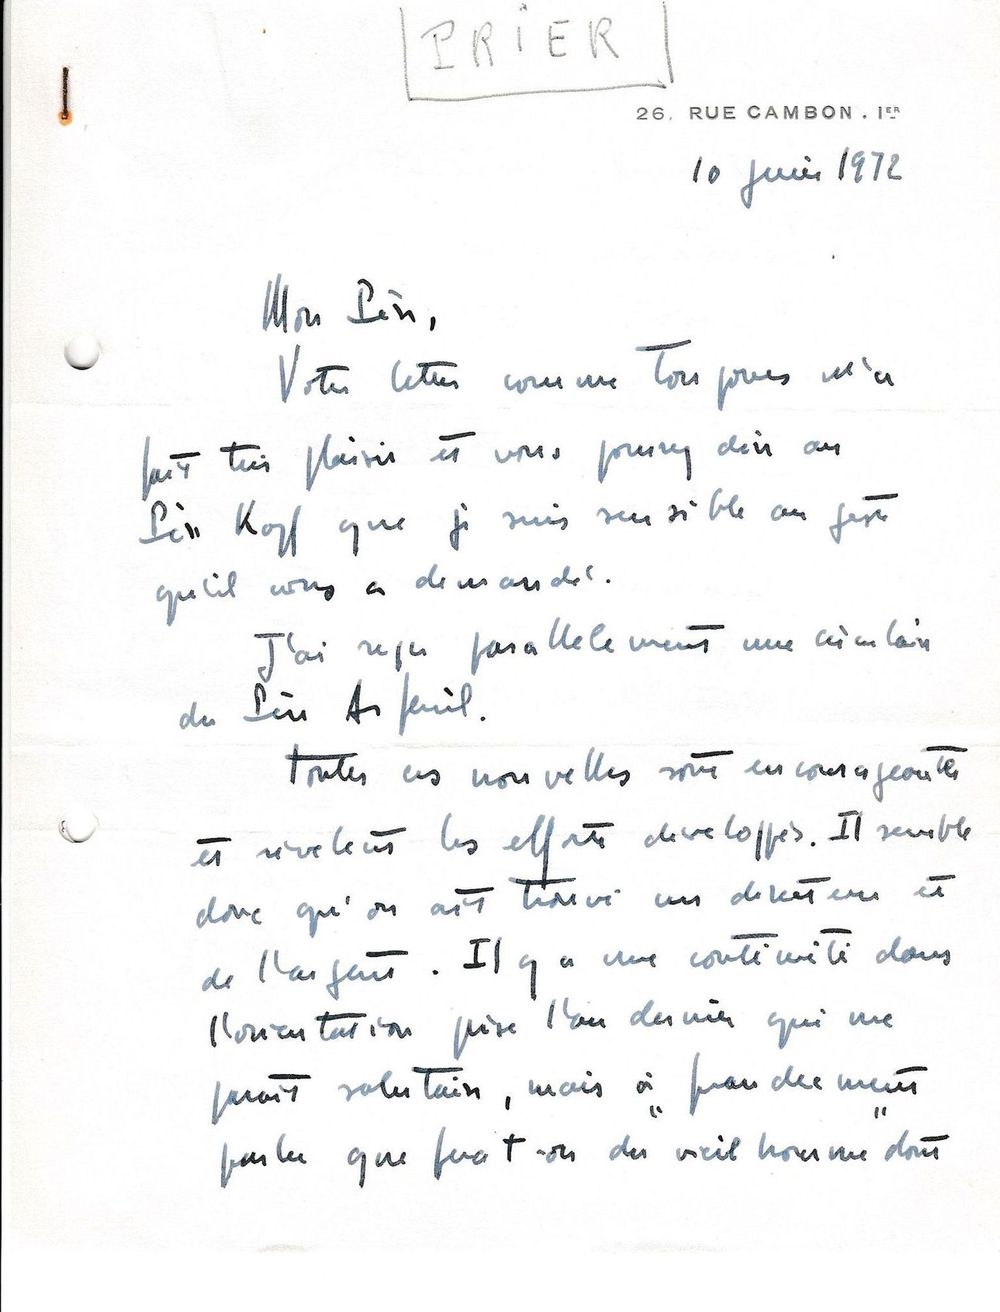 PRIER
26, RUE CAMBON . IER
10 juin 1972
Mon Père,
Votre lettre comme toujours m'a
fait très plaisir et vous pourrez dire au
Père Kopf que je suis sensible au geste
qu'il vous a demandé.
J'ai reçu parallelement une circulaire
du Père Arfeuil.
Toutes ces nouvelles sont encourageantes
et révèlent les efforts développés. Il semble
donc qu'on ait trouvé un directeur et
de l'argent. Il y a une continuité dans
l'orientation prise l'an dernier qui me
parait salutaire, mais à franchement
parler que fera t-on du "vieil homme" dont